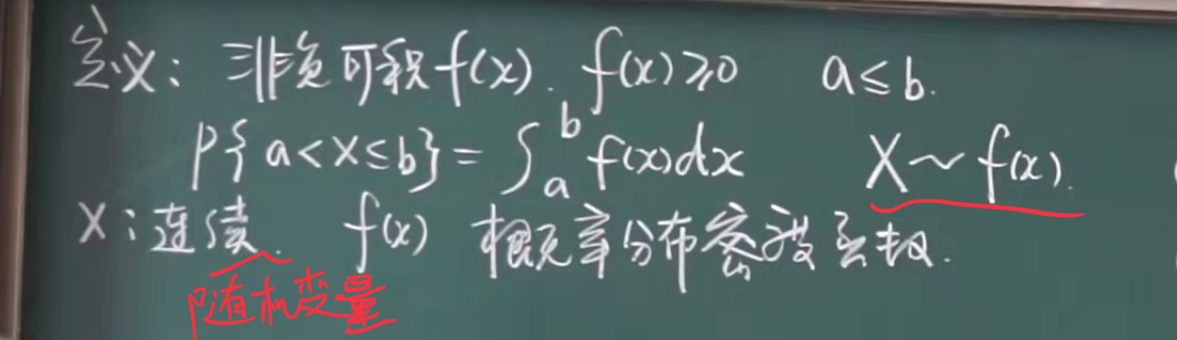 定义: 非负可积f(x). f(x)≥0 a≤b.
P{a<X≤b}=∫_a^b f(x)dx X~f(x).
X:连续. f(x) 概率分布密度函数.
随机变量